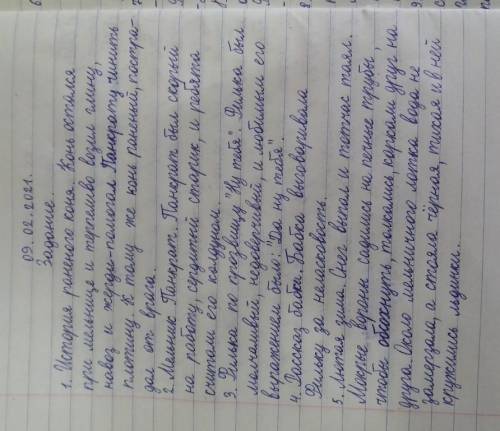 09.02.2021.
Задание.
1. История раненого коня. Конь остался
при мельнице и терпеливо возил глину,
навоз и жерди-помогал Панкрату чинить
плотину. К тому же конь раненый, постра-
дал от врага.
2. Мельник Панкрат. Панкрат был скорый
на работу, сердитый старик, и ребята
считали его колдуном.
3. Филька по прозвищу "Ну тебя". Филька был
молчаливый, недоверчивый и любимым его
выражением было: "Да ну тебя".
4. Рассказ бабки. Бабка выговаривала
Фильку за неласковость.
5. Лютая зима. Снег выпал и тотчас таял.
Мокрые вороны садились на печные трубы,
чтобы обсохнуть, толкались, каркали друг на
друга. Около мельничного лотка вода не
замерзала, а стояла чёрная, тихая и в ней
кружились льдинки.